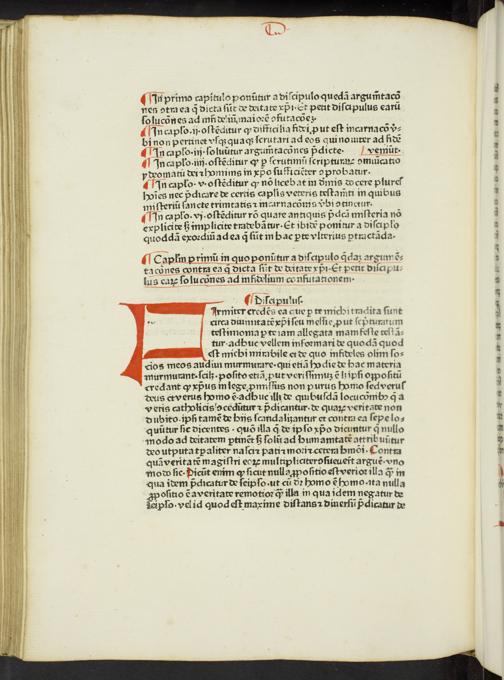 ¶In primo capitulo ponūtur a discipulo quedā argumētacō
nes cōtra ea q̄ dicta sūt de deitate xp̄i. Et petit discipulus earū
solucōnes ad infideliū, maiorē cōfutacōez
¶In capl'o·ij·ostēditur q̄ difficilia fidei, put est incarnacō v̓
bi non pertinet vsquequaq̄ scrutari ad eos qui nouiter ad fidē
¶In capl'o·iij·soluūtur argumētacōnes p̄dicte. veniūt.
¶In capl'o·iiij·ostēditur q̄ p scrutiniū scripturarꝝ
p deomatū dei et hominis in xp̄o sufficiēter cōprobatur.
¶In capl'o·v·ostēditur qr nō licebat in dōnis docere plures
hōies nec p̄dicare de certis capl'is veteris testamēti in quibus
misteriū sancte trinitatis et incarnacōnis v̓bi cōtinetur.
¶In capl'o·vi·ostēditur rō quare antiquis p̄dcā misteria nō
explicite s; implicite tradebātur. Et ibidē ponitur a discipulo
quoddā exordiū ad ea q̄ sūt in hac pte vlterius ptractāda.
¶Capl'm primū in quo ponūtur a discipulo q̄dā argumē
tacōnes contra ea q̄ dicta sūt de deitate xp̄i. Et petit discipu
lus earꝝ solucōnes ad infidelium confutationem.
¶Discipulus.
Firmiter credēs ea que p te michi tradita sunt
circa diuinitatē xp̄i seu messie, put p scripturarum
testimonia p te iam allegata manifeste testan
tur· adhuc vellem informari de quodā quod
est michi mirabile et de quo infideles olim so
cios meos audiui murmurare· qui etiā hodie de hac materia
murmurant· scil; posito etiā, put verissimū ē licet ipsi oppositū
credant q̄ xp̄us in lege pmissus non purus homo sed verus
deus et verus homo ē· adhuc ill; de quibusdā locucōnib; q̄ a
veris catholicis cōcedūtur et p̄dicantur· de quarꝝ veritate non
dubito· ip̄i tamē de hijs scandalizantur et contra ea sepe lo
quūtur sic dicentes· quo illa q̄ de ip̄so xp̄o dicuntur q̄ nullo
modo ad deitatem ptinēt s; solū ad humanitatē attribuūtur
deo utputa tp̄aliter nasci pati mori et cetera hmōi. Contra
quā veritatē magistri eorꝝ multipliciter cōsueuerūt arguere· vno
modo sic. Dicūt enim q̄ sicut nulla ppositio est verior illa q̄ in
qua idem p̄dicatur de seipso· vt cū dr̄ homo ē homo· ita nulla
ppositio ē a veritate remotior q̄ illa in qua idem negatur de
seipso· vel id quod est maxime distans et diuersū p̄dicatur de